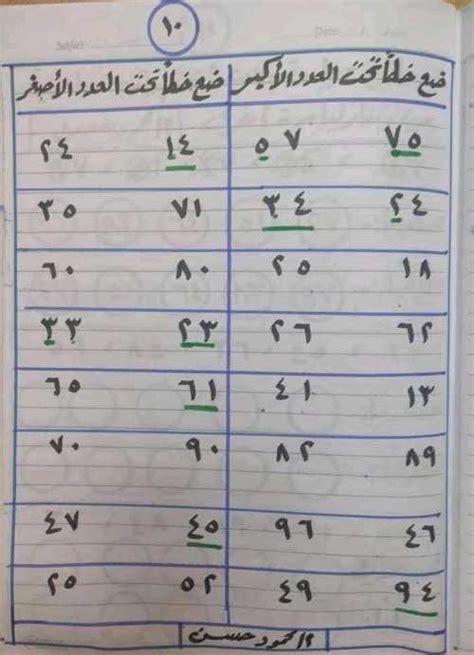 ١٠
Date
ضع خطاً تحت العدد الأكبر ضع خطاً تحت العدد الأصغر
٧٥ ٥٧ ١٤ ٢٤
٢٤ ٣٤ ٧١ ٣٥
١٨ ٢٥ ٨٠ ٦٠
٦٢ ٢٦ ٢٣ ٣٣
١٣ ٤١ ٦١ ٦٥
٨٩ ٨٢ ٩٠ ٧٠
٤٦ ٩٦ ٤٥ ٤٧
٩٤ ٤٩ ٥٢ ٢٥
أ/محمود حسن